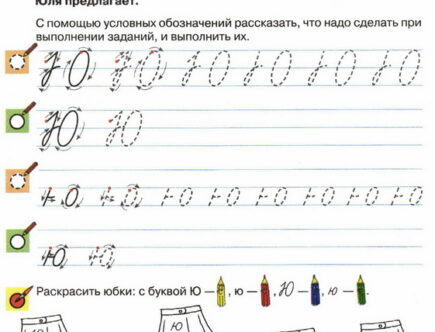 Юля предлагает:
С помощью условных обозначений рассказать, что надо сделать при
выполнении заданий, и выполнить их.
Ю Ю Ю Ю Ю Ю Ю
Ю Ю
ю ю ю ю ю ю ю ю
ю ю
Раскрасить юбки: с буквой Ю – , ю – , Ю – , ю – .
Ю